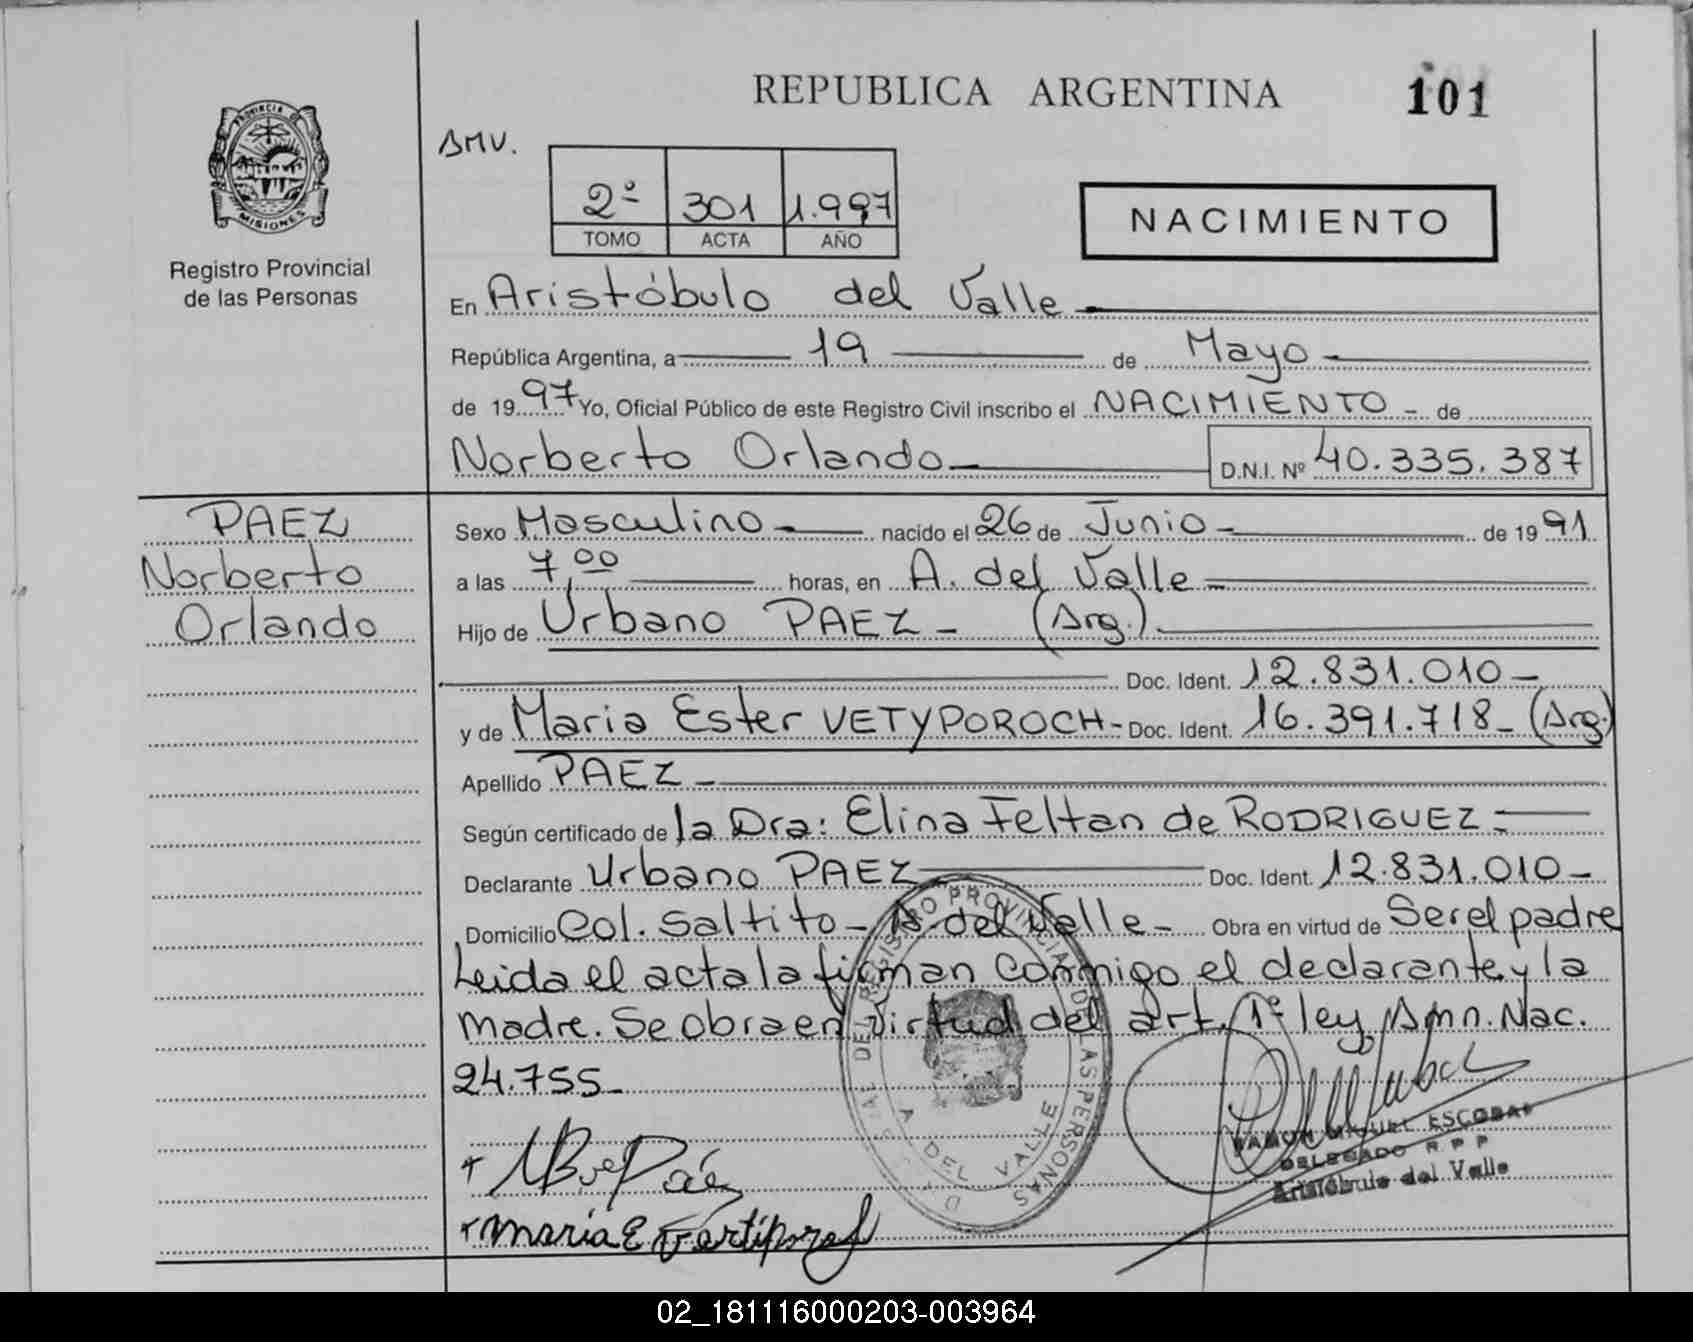 REPUBLICA ARGENTINA
101
PROVINCIA DE
MISIONES
Registro Provincial
de las Personas
AMV.
2º 301 1.997
TOMO ACTA AÑO
NACIMIENTO
En Aristóbulo del Valle
República Argentina, a 19 de Mayo
de 1997 Yo, Oficial Público de este Registro Civil inscribo el NACIMIENTO de
Norberto Orlando D.N.I. Nº 40.335.387
PAEZ
Norberto
Orlando
Sexo Masculino nacido el 26 de Junio de 1991
a las 7,00 horas, en A. del Valle
Hijo de Urbano PAEZ (Arg.)
Doc. Ident. 12.831.010
y de Maria Ester VETYPOROCH Doc. Ident. 16.391.718 (Arg.)
Apellido PAEZ
Según certificado de la Dra: Elina Feltan de RODRIGUEZ
Declarante Urbano PAEZ Doc. Ident. 12.831.010
Domicilio Col. Saltito - A. del Valle Obra en virtud de Ser el padre
Leida el acta la firman conmigo el declarante y la
madre. Se obra en virtud del art. 1º ley Amn. Nac.
24.755
REGISTRO PROVINCIAL DE LAS PERSONAS
A. DEL VALLE
RAMON MIGUEL ESCOBAR
DELEGADO R P P
Aristóbulo del Valle
Paéz
Maria E
02_181116000203-003964